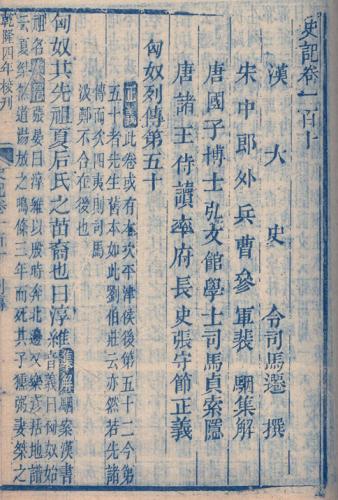 史記卷一百十
漢太史令司馬遷撰
宋中郎外兵曹參軍裴駰集解
唐國子博士弘文館學士司馬貞索隱
唐諸王侍讀率府長史張守節正義
匈奴列傳第五十
正義此卷或有本次平津侯後第五十二今第
五十者先生舊本如此劉伯莊云亦然若先諸
傳而次四夷則司馬
汲鄭不合在後也
匈奴其先祖夏后氏之苗裔也曰淳維
集解駰案漢書
音義曰匈奴始
祖名 索隱張晏曰淳維以殷時奔北邊又樂彥括地譜
云夏桀無道湯放之鳴條三年而死其子獯粥妻桀之
乾隆四年校刊
史記卷一百十 列傳